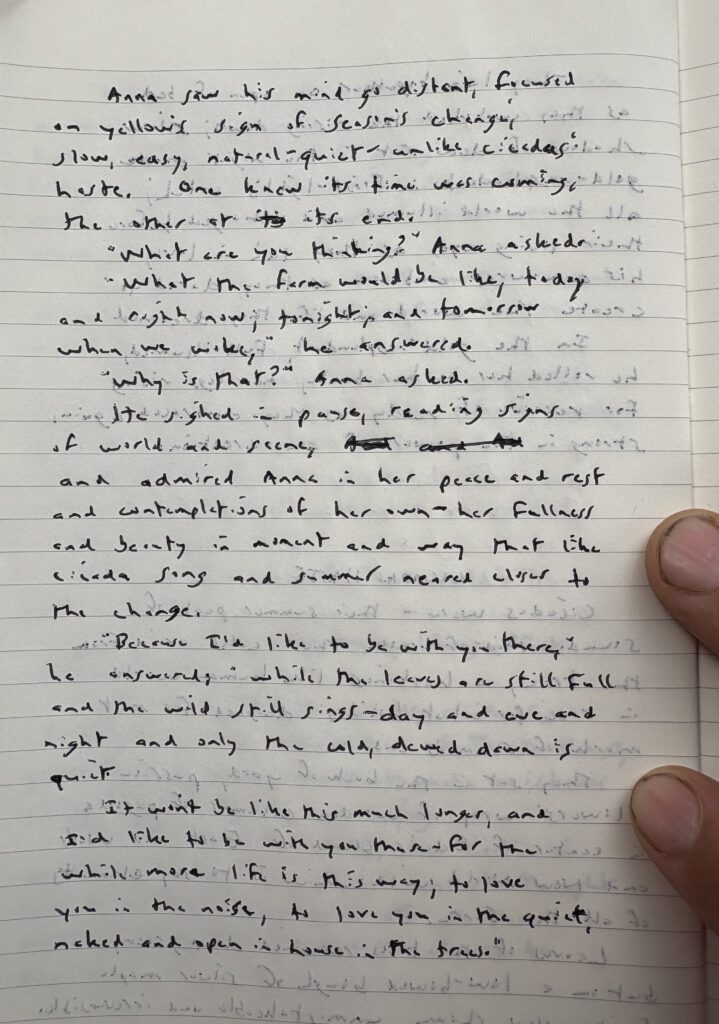 Anna saw his mind go distant, focused
on yellow's sign of season's change,
slow, easy, natural-quiet-unlike cicadas'
haste. One knew its time was coming,
the other at its end.
"What are you thinking?" Anna asked.
"What the farm would be like, today
and right now, tonight, and tomorrow
when we woke," he answered.
"Why is that?" Anna asked.
He sighed in pause, reading signs
of world and scene,
and admired Anna in her peace and rest
and contemplations of her own - her fullness
and beauty in moment and way that like
cicada song and summer neared closer to
the change.
"Because I'd like to be with you there,"
he answered, "while the leaves are still full
and the wild still sings - day and eve and
night and only the cold, dewed dawn is
quiet.
It won't be like this much longer, and
I'd like to be with you there - for the
while more life is this way; to love
you in the noise, to love you in the quiet,
naked and open in house in the trees."